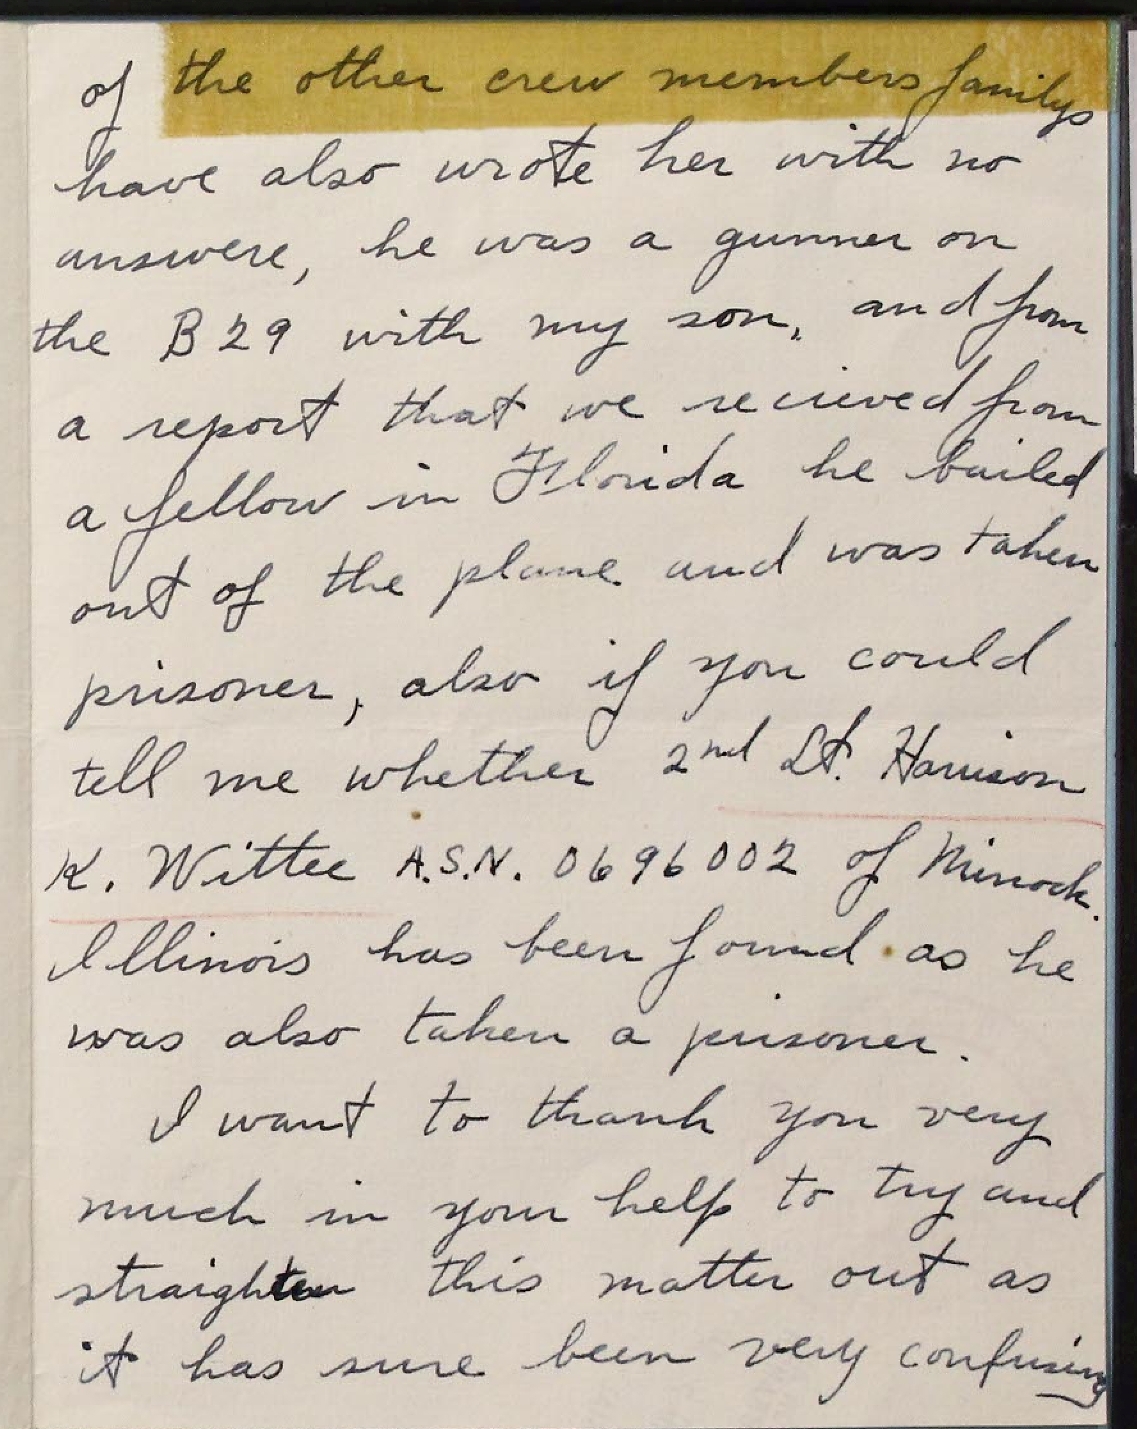 of the other crew members familys
have also wrote her with no
answere, he was a gunner on
the B29 with my son, and from
a report that we recieved from
a fellow in Florida he bailed
out of the plane and was taken
prisoner, also if you could
tell me whether 2nd Lt. Harrison
K. Wittee A.S.N. 0696002 of Minock.
Illinois has been found as he
was also taken a prisoner.
I want to thank you very
much in your help to try and
straighten this matter out as
it has sure been very confusing